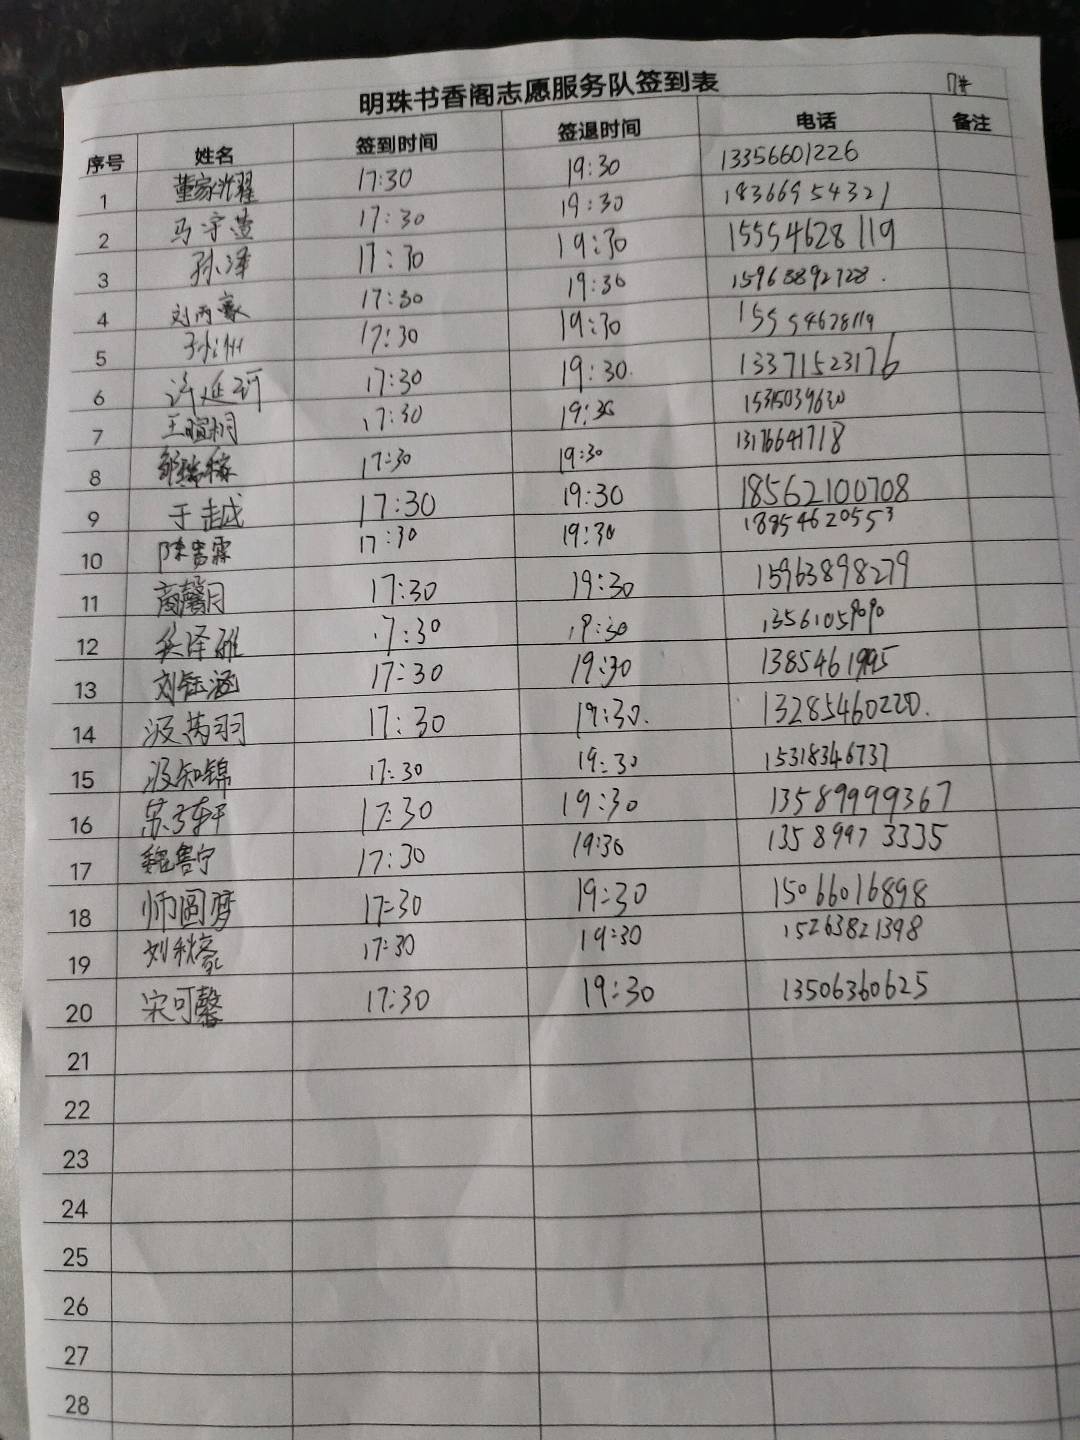 明珠书香阁志愿服务队签到表
17#
序号 姓名 签到时间 签退时间 电话 备注
1 董家兴耀 17:30 19:30 13356601226
2 马宇萱 17:30 19:30 18366954321
3 孙泽 17:30 19:30 15554628119
4 刘丙豪 17:30 19:30 15963892728.
5 孙州 17:30 19:30 15554628119
6 许延珂 17:30 19:30. 13371523176
7 王暄桐 17:30 19:30 15315039630
8 17:30 19:30 13176641718
9 于越 17:30 19:30 18562100708
10 陈雪霖 17:30 19:30 18954620553
11 商馨月 17:30 19:30 15963898279
12 泽雅 17:30 19:30 13561059090
13 刘钰涵 17:30 19:30 1385461995
14 汲芮羽 17:30 19:30. 13285460220.
15 汲知锦 17:30 19:30 15318346737
16 宋子轩 17:30 19:30 13589999367
17 魏鲁宁 17:30 19:30 13589973335
18 师圆梦 17:30 19:30 15066016898
19 刘秋豪 17:30 19:30 15263821398
20 宋可馨 17:30 19:30 13506360625
21
22
23
24
25
26
27
28